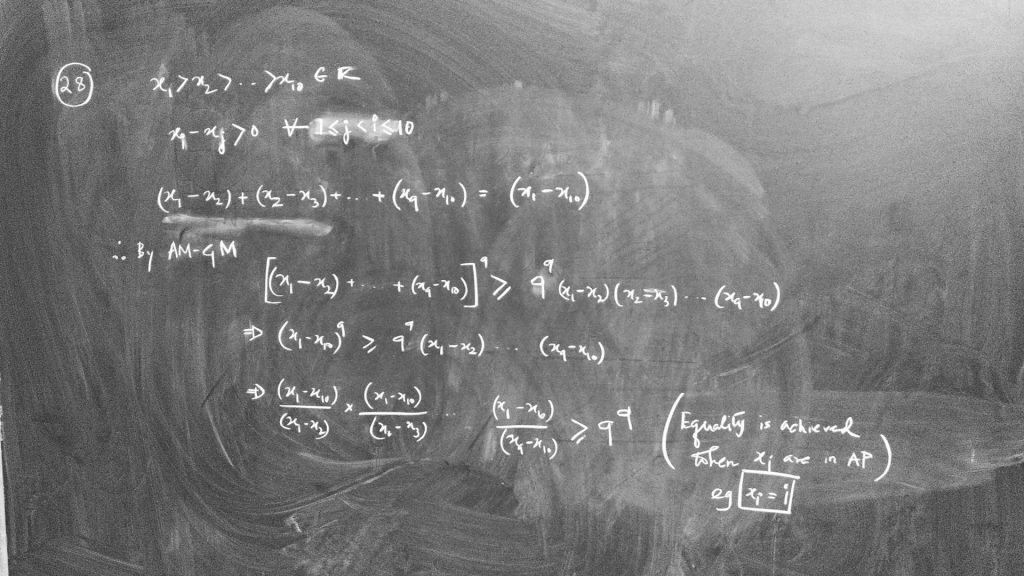 (28) x₁ > x₂ > ... > x₁₀ ∈ R
xᵢ - xⱼ > 0 ∀ 1 ≤ j < i ≤ 10
(x₁ - x₂) + (x₂ - x₃) + ... + (x₉ - x₁₀) = (x₁ - x₁₀)
∴ By AM-GM
[(x₁ - x₂) + ... + (x₉ - x₁₀)]⁹ ≥ 9⁹ (x₁ - x₂)(x₂ - x₃) ... (x₉ - x₁₀)
⇒ (x₁ - x₁₀)⁹ ≥ 9⁹ (x₁ - x₂) ... (x₉ - x₁₀)
⇒ (x₁ - x₁₀)/(x₁ - x₂) × (x₁ - x₁₀)/(x₂ - x₃) ... (x₁ - x₁₀)/(x₉ - x₁₀) ≥ 9⁹
(Equality is achieved
when xᵢ are in AP)
eg xᵢ = i